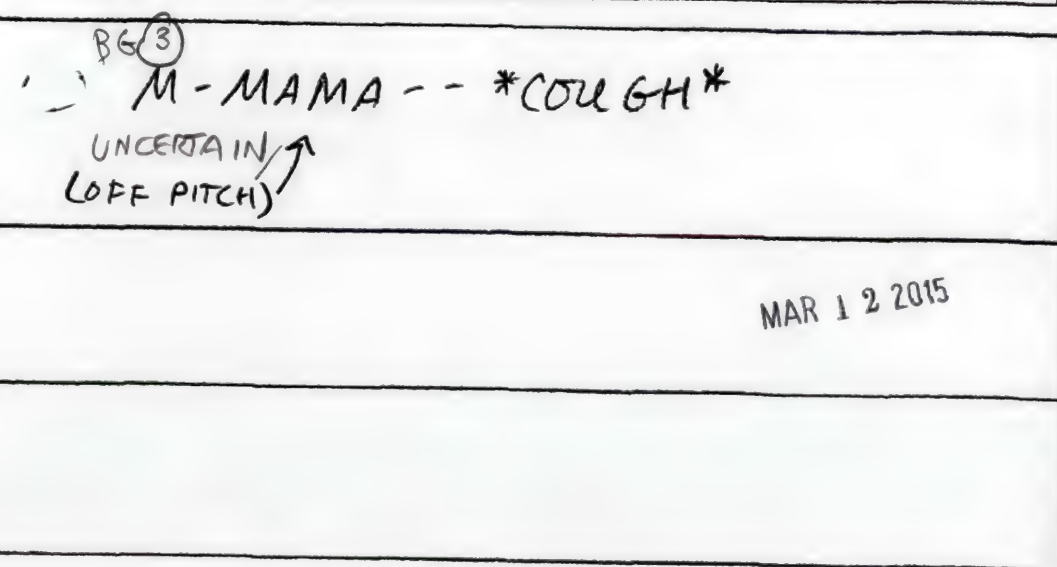 BG 3
M-MAMA-- *COUGH*
UNCERTAIN
(OFF PITCH)
MAR 12 2015